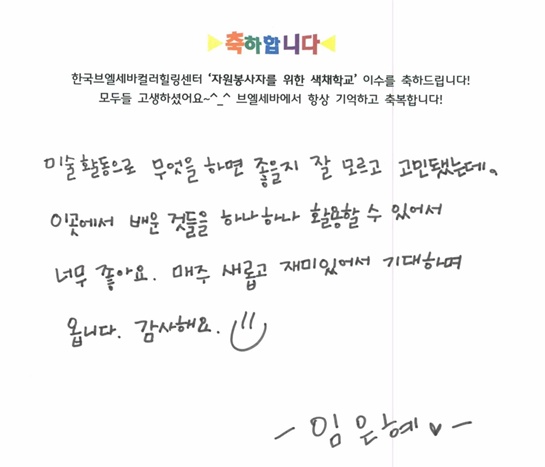 축하합니다
한국브엘세바컬러힐링센터 ‘자원봉사자를 위한 색채학교’ 이수를 축하드립니다!
모두들 고생하셨어요~^_^ 브엘세바에서 항상 기억하고 축복합니다!
미술활동으로 무엇을 하면 좋을지 잘 모르고 고민됐는데,
이곳에서 배운 것들을 하나하나 활용할 수 있어서
너무 좋아요. 매주 새롭고 재미있어서 기대하며
옵니다. 감사해요.
- 임은혜 ♥ -